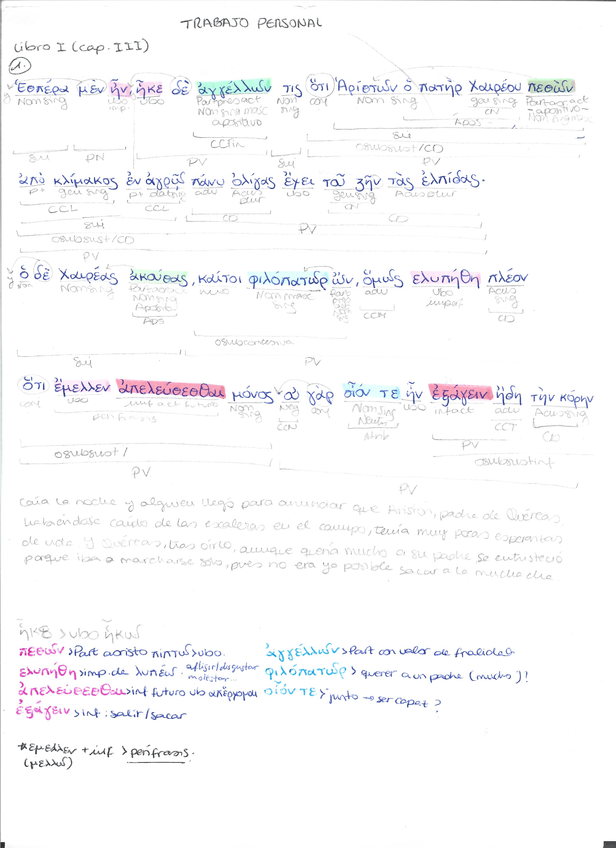 TRABAJO PERSONAL
Libro I (cap. III)
1.
Ἑσπέρα μὲν ἦν, ἧκε δὲ ἀγγέλλων τις ὅτι Ἀρίστων ὁ πατὴρ Χαιρέου πεσὼν
Nom sing vbo imp vbo Part pres act Nom sing conj Nom sing gen sing Part aor act
Nom sing masc apositivo
CN
Apos
CCFin
suj
suj PN PV suj osubsust/CD PV
ἀπὸ κλίμακος ἐν ἀγρῷ πάνυ ὀλίγας ἔχει τοῦ ζῆν τὰς ἐλπίδας.
gen sing adv vbo
CCL CCL CD CN CD
suj PV
osubsust/CD
PV
ὁ δὲ Χαιρέας ἀκούσας, καίτοι φιλοπάτωρ ὤν, ὅμως ἐλυπήθη πλέον
Nom sing Nom masc sing adv vbo Acus sing
Nom sing
Apos CCM CD
osubconcesiva
suj PV
ὅτι ἔμελλεν ἀπελεύσεσθαι μόνος· οὐ γὰρ οἷόν τε ἦν ἐξάγειν ἤδη τὴν κόρην
conj vbo inf act futuro Nom sing Neg conj Nom sing Neutro vbo inf act adv Acus sing
perífrasis CCN CCT CD
osubsust/ PV osubsust inf
PV PV
Caía la noche y alguien llegó para anunciar que Aristón, padre de Quéreas,
habiéndose caído de las escaleras en el campo, tenía muy pocas esperanzas
de vida. Y Quéreas, tras oírlo, aunque quería mucho a su padre se entristeció
porque iba a marcharse solo, pues no era ya posible sacar a la muchacha.
ἧκε > vbo ἥκω
πεσὼν > Part aoristo πιπτω > vbo. ἀγγέλλων > Part con valor de finalidad
ελυπήθη > imp. de λυπέω. afligir/disgustar φιλοπάτωρ > querer a un padre (mucho)!
molestar...
ἀπελεύσεσθαι > inf futuro vbo απέρχομαι οἷόν τε > junto → ser capaz?
ἐξάγειν > inf: salir/sacar
*εμελλεν + inf > perífrasis.
(μελλω)